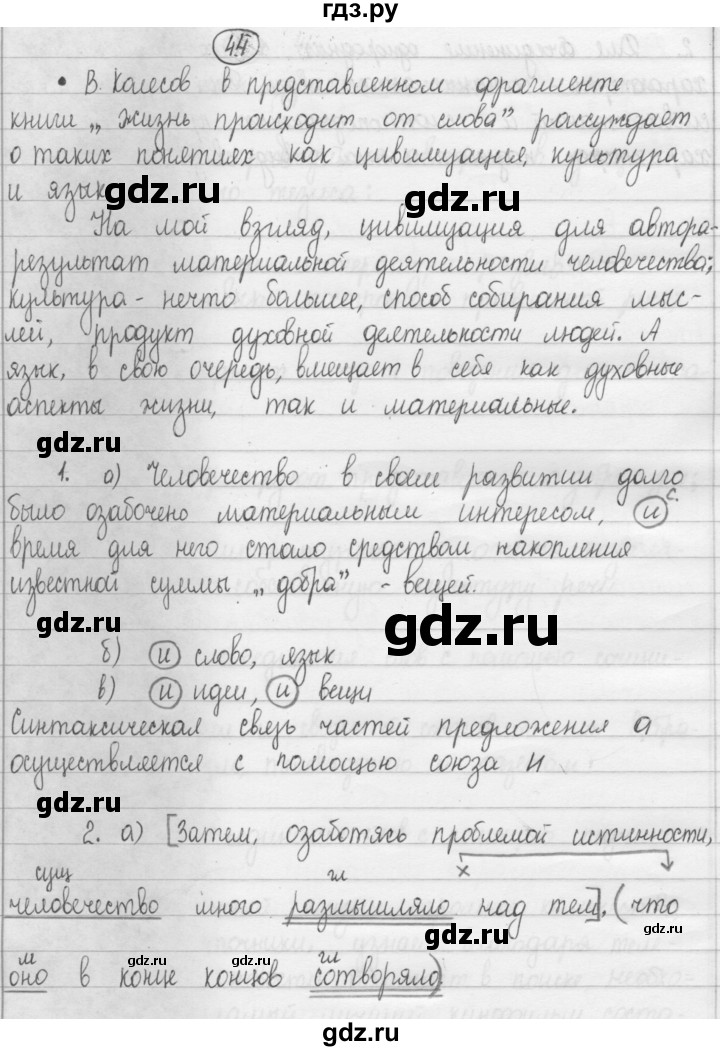 гдз.ру
44
• В. Колесов в представленном фрагменте
книги „Жизнь происходит от слова" рассуждает
о таких понятиях как цивилизация, культура
и язык
gdz.ru gdz.ru
На мой взгляд, цивилизация для автора-
результат материальной деятельности человечества;
культура - нечто большее, способ собирания мыс-
лей, продукт духовной деятельности людей. А
язык, в свою очередь, вмещает в себе как духовные
аспекты жизни, так и материальные.
gdz.ru
1. а) Человечество в своем развитии долго
было озабочено материальным интересом, и с.
время для него стало средством накопления
известной суммы „добра" - вещей.
gdz.ru
gdz.ru
б) и слово, язык
в) и идеи, и вещи
Синтаксическая связь частей предложения а
осуществляется с помощью союза и
gdz.ru
2. а) [Затем, озаботясь проблемой истинности,
сущ х гл
человечество много размышляло над тем], (что
gdz.ru
м гл
оно в конце концов сотворяло)
gdz.ru gdz.ru gdz.ru
gdz.ru